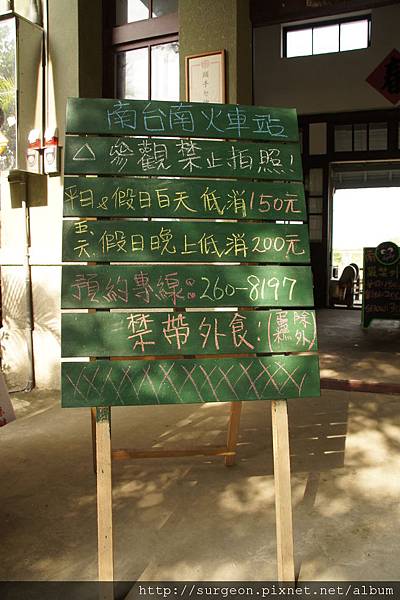 南台南火車站
△參觀禁止拍照!
平日&假日白天低消150元
五六假日晚上低消200元
預約專線:260-8197
禁帶外食!(蛋糕除外)
XXXXXXXXXX
http://surgeon.pixnet.net/album